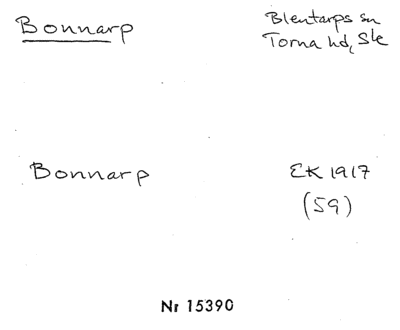 Bonnarp
Blentarps sn
Torna hd, Sk
Bonnarp
EK 1917
(59)
Nr 15390